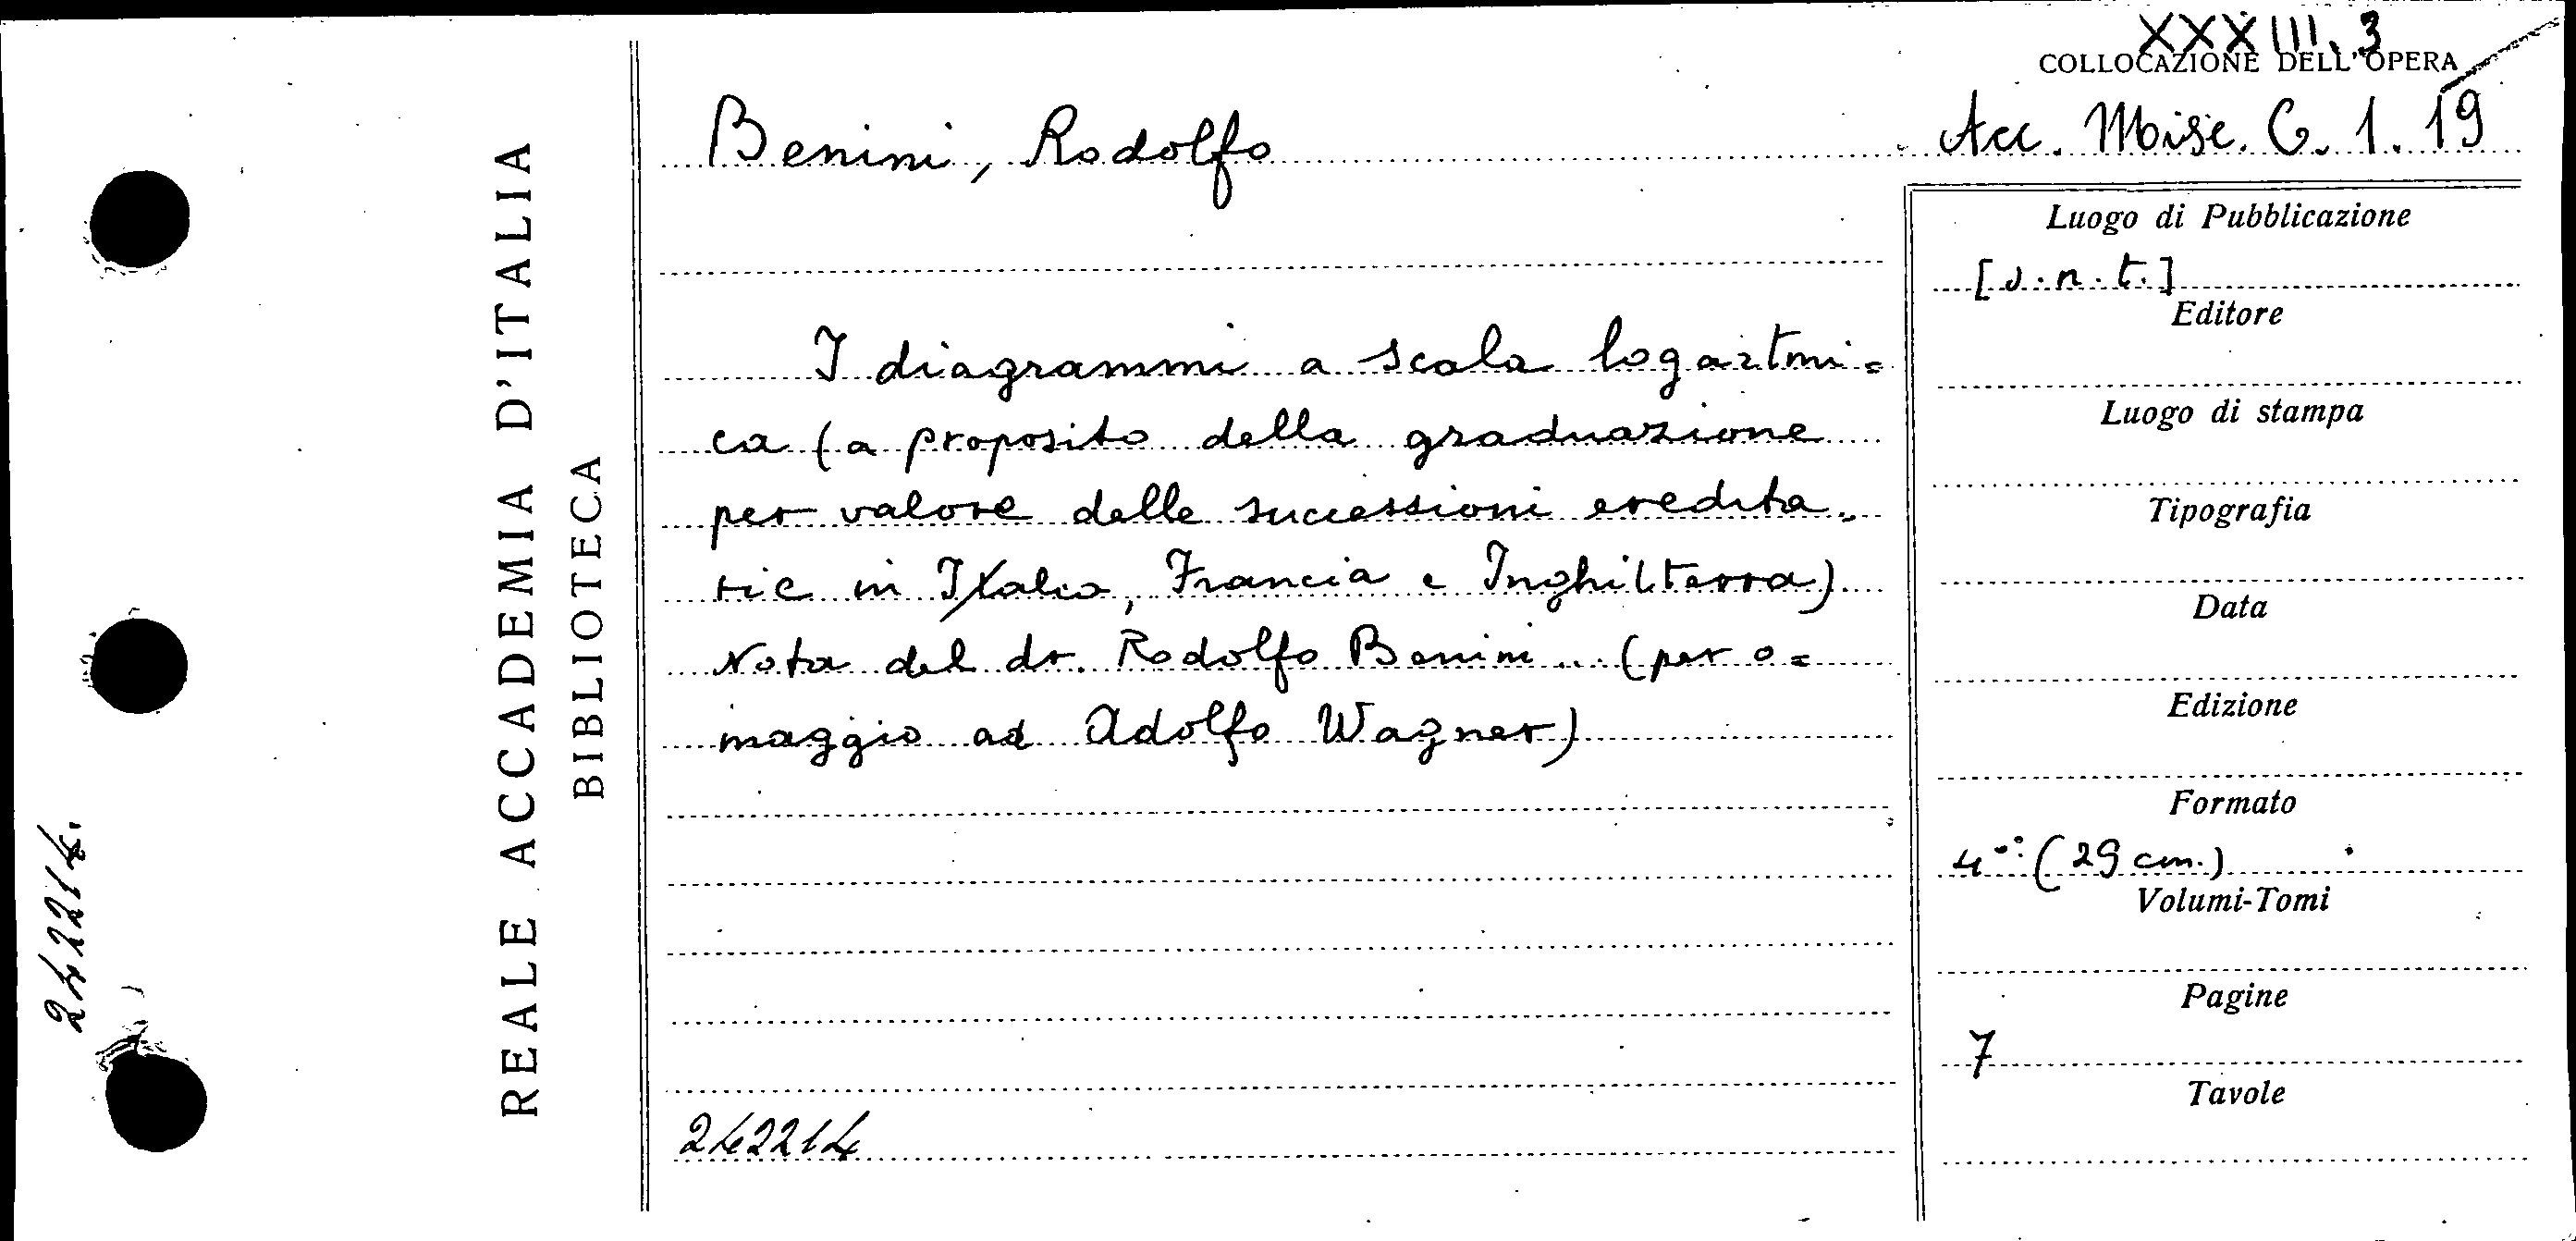 XXXIII.3
COLLOCAZIONE DELL'OPERA
Benini, Rodolfo
Acc. Misc. G. 1. 19
I diagrammi a scala logaritmi=
ca (a proposito della graduazione
per valore delle successioni eredita=
rie in Italia, Francia e Inghilterra)
Nota del dr. Rodolfo Benini... (per o=
maggio ad Adolfo Wagner)
242214
REALE ACCADEMIA D'ITALIA
BIBLIOTECA
242214.
Luogo di Pubblicazione
[s.n.t.]
Editore
Luogo di stampa
Tipografia
Data
Edizione
Formato
4° (29 cm.)
Volumi-Tomi
Pagine
7
Tavole